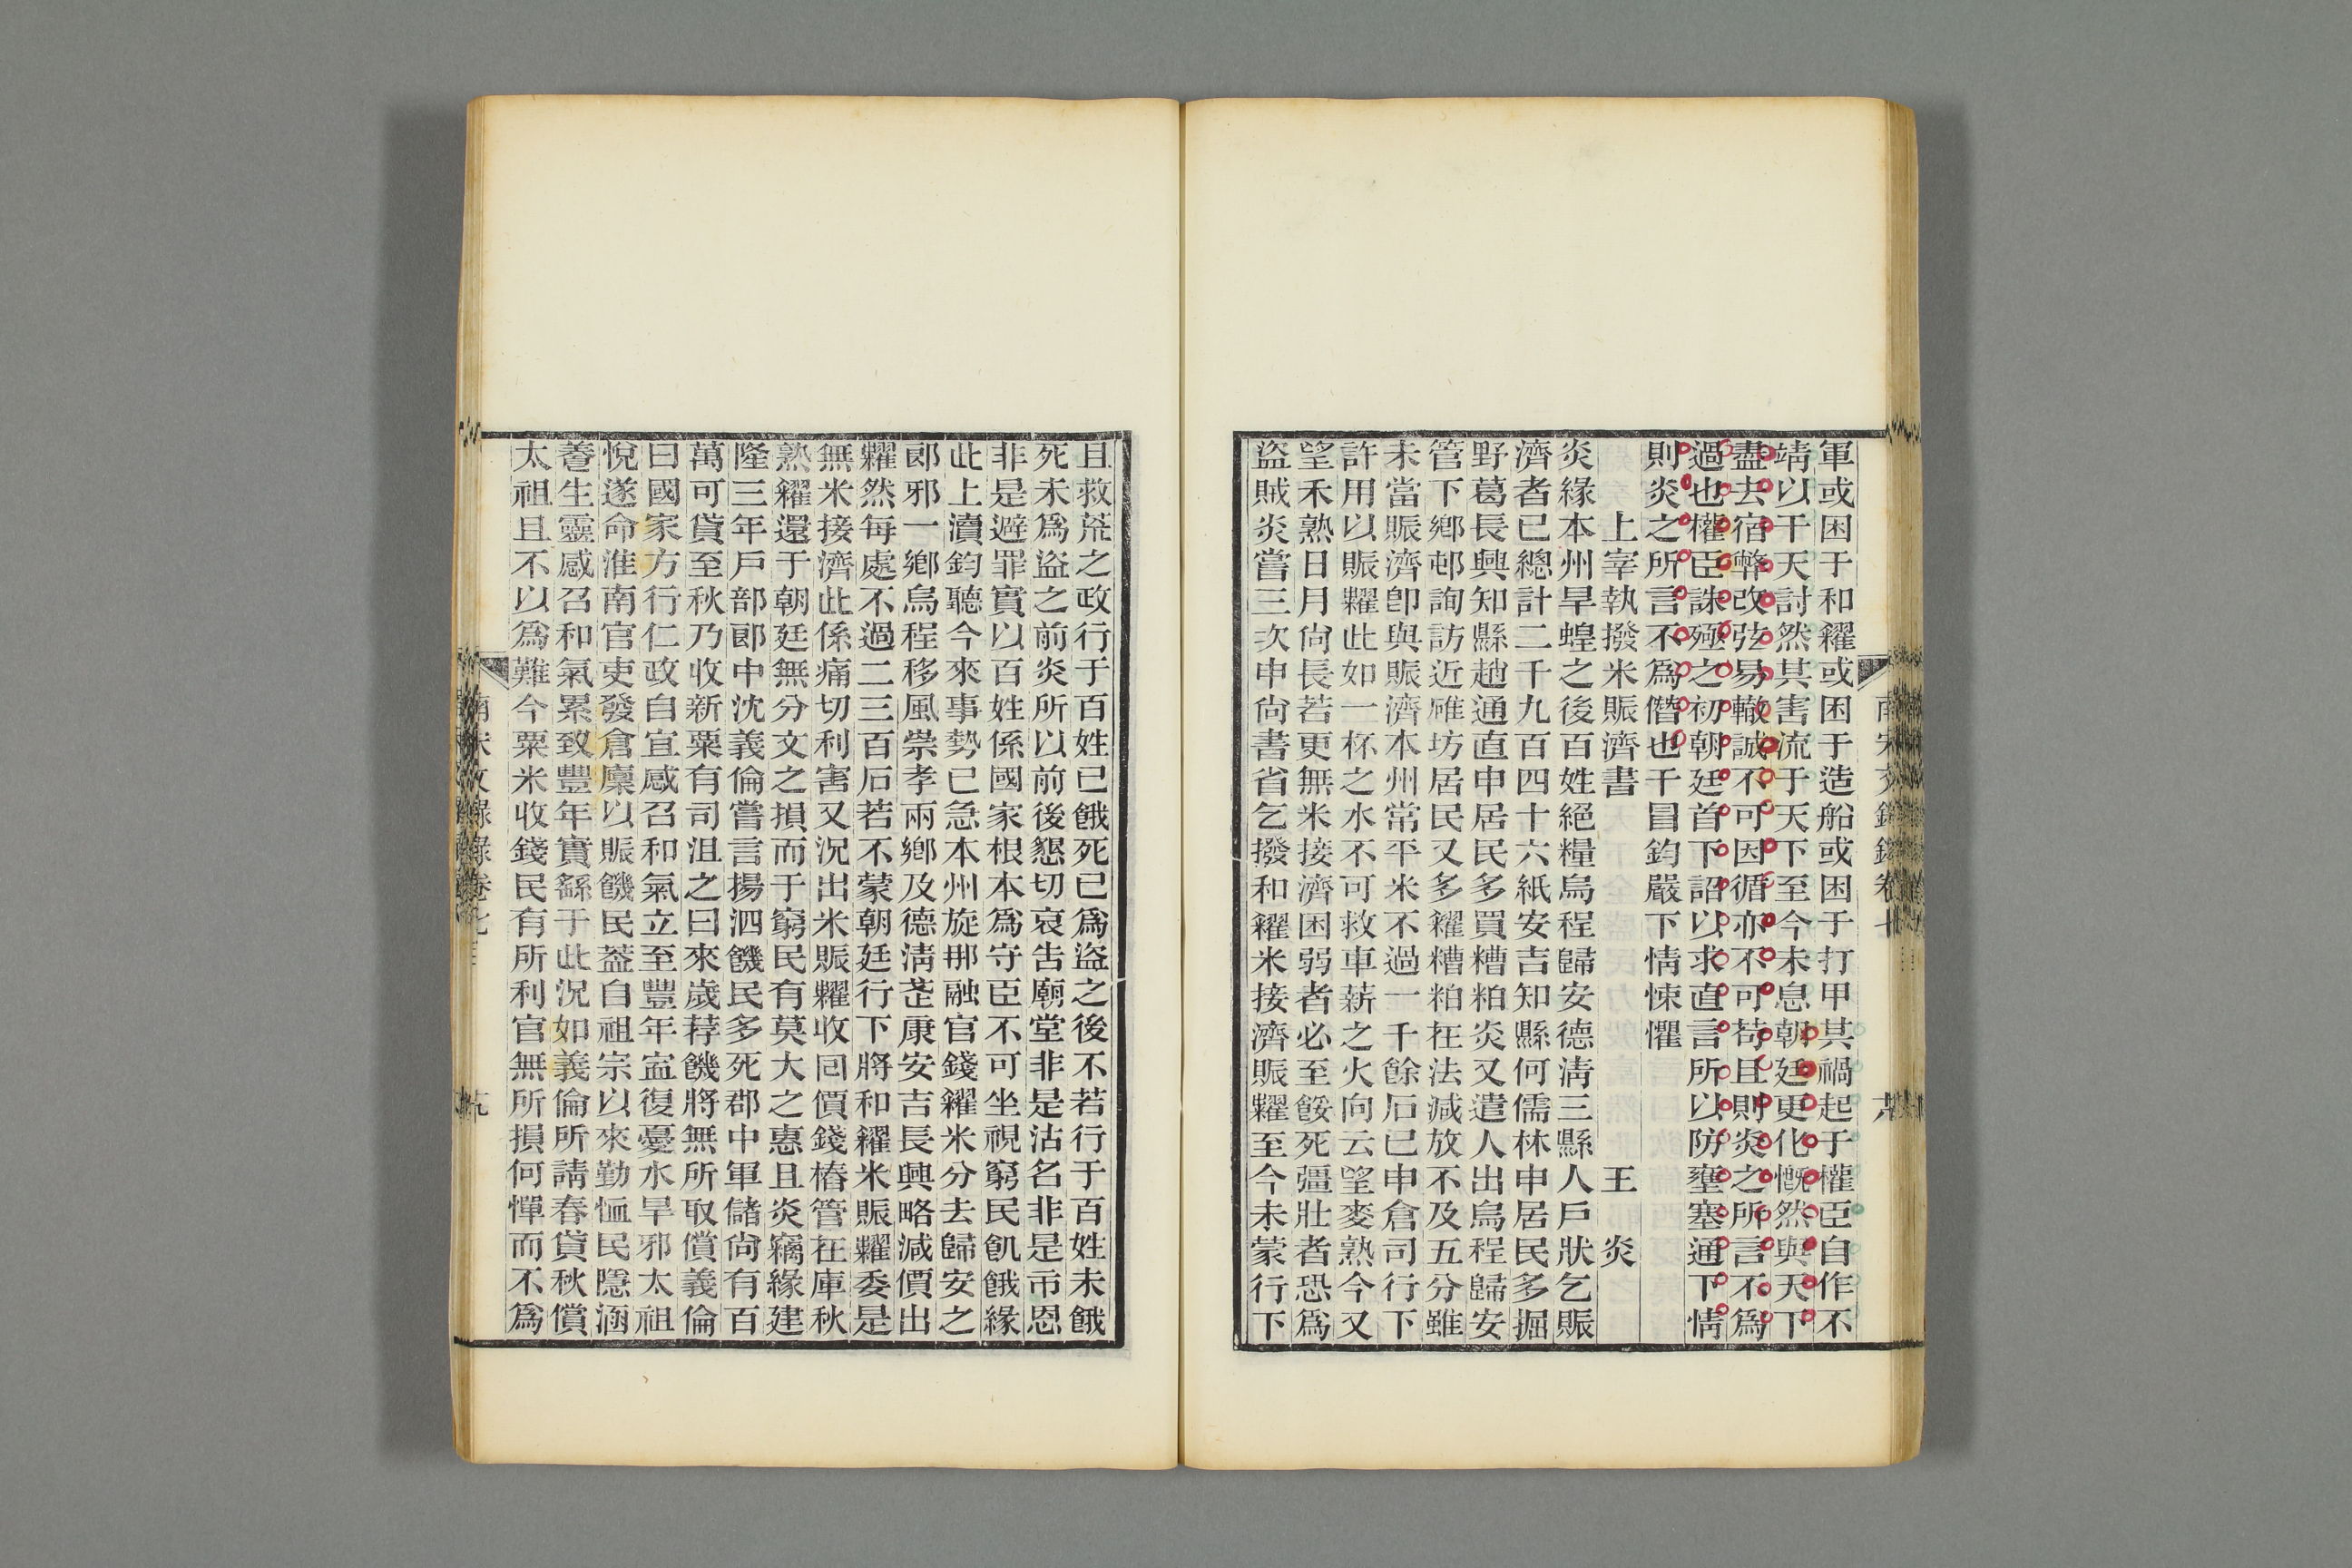 軍或困于和糴或困于造船或困于打甲其禍起于權臣自作不
靖以干天討然其害流于天下至今未息朝廷更化慨然與天下
盡去宿弊改弦易轍誠不可因循亦不可苟且則炎之所言不爲
過也權臣誅殛之初朝廷首下詔以求直言所以防壅塞通下情
則炎之所言不爲僭也干冒鈞嚴下情悚懼
上宰執撥米賑濟書 王炎
炎緣本州旱蝗之後百姓絕糧烏程歸安德淸三縣人戶狀乞賑
濟者已總計二千九百四十六紙安吉知縣何儒林申居民多掘
野葛長興知縣趙通直申居民多買糟粕炎又遣人出烏程歸安
管下鄉邨詢訪近雖坊居民又多糴糟粕在法減放不及五分雖
未當賑濟卽與賑濟本州常平米不過一千餘石已申倉司行下
許用以賑糶此如一杯之水不可救車薪之火向云望麥熟今又
望禾熟日月尙長若更無米接濟困弱者必至餒死彊壯者恐爲
盜賊炎嘗三次申尙書省乞撥和糴米接濟賑糶至今未蒙行下
南宋文錄錄卷七
且救荒之政行于百姓已餓死已爲盜之後不若行于百姓未餓
死未爲盜之前炎所以前後懇切哀告廟堂非是沽名非是市恩
非是避罪實以百姓係國家根本爲守臣不可坐視窮民飢餓緣
此上瀆鈞聽今來事勢已急本州旋那融官錢糴米分去歸安之
郎邪一鄉烏程移風崇孝兩鄉及德淸茊康安吉長興略減價出
糶然每處不過二三百石若不蒙朝廷行下將和糴米賑糶委是
無米接濟此係痛切利害又況出米賑糶收回價錢樁管在庫秋
熟糴還于朝廷無分文之損而于窮民有莫大之惠且炎竊緣建
隆三年戶部郎中沈義倫嘗言揚泗饑民多死郡中軍儲尙有百
萬可貸至秋乃收新粟有司沮之曰來歲荐饑將無所取償義倫
曰國家方行仁政自宜感召和氣立至豐年寍復憂水旱邪太祖
悅遂命淮南官吏發倉廩以賑饑民葢自祖宗以來勤恤民隱涵
養生靈感召和氣累致豐年實繇于此況如義倫所請春貸秋償
太祖且不以爲難今粟米收錢民有所利官無所損何憚而不爲
南宋文錄錄卷七